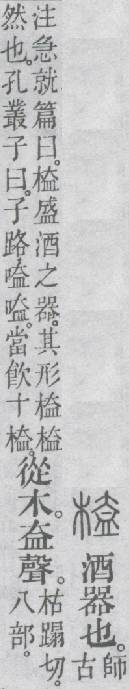 榼 酒器也。師
古
注急就篇曰。榼盛酒之器。其形榼榼
然也。孔叢子曰。子路嗑嗑。當飮十榼。
從木。盇聲。
枯蹋切。
八部。